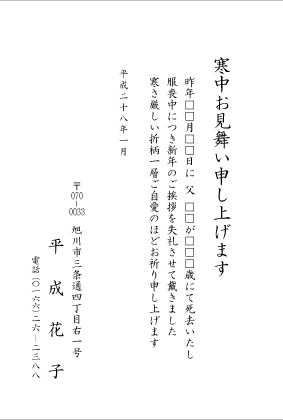 寒中お見舞い申し上げます
昨年□□月□□日に 父 □□が□□□歳にて死去いたし
服喪中につき新年のご挨拶を失礼させて戴きました
寒さ厳しい折柄一層ご自愛のほどお祈り申し上げます
平成二十八年一月
〒070-0033
旭川市三条通四丁目右一号
平成花子
電話(〇一六六)二六-二三八八